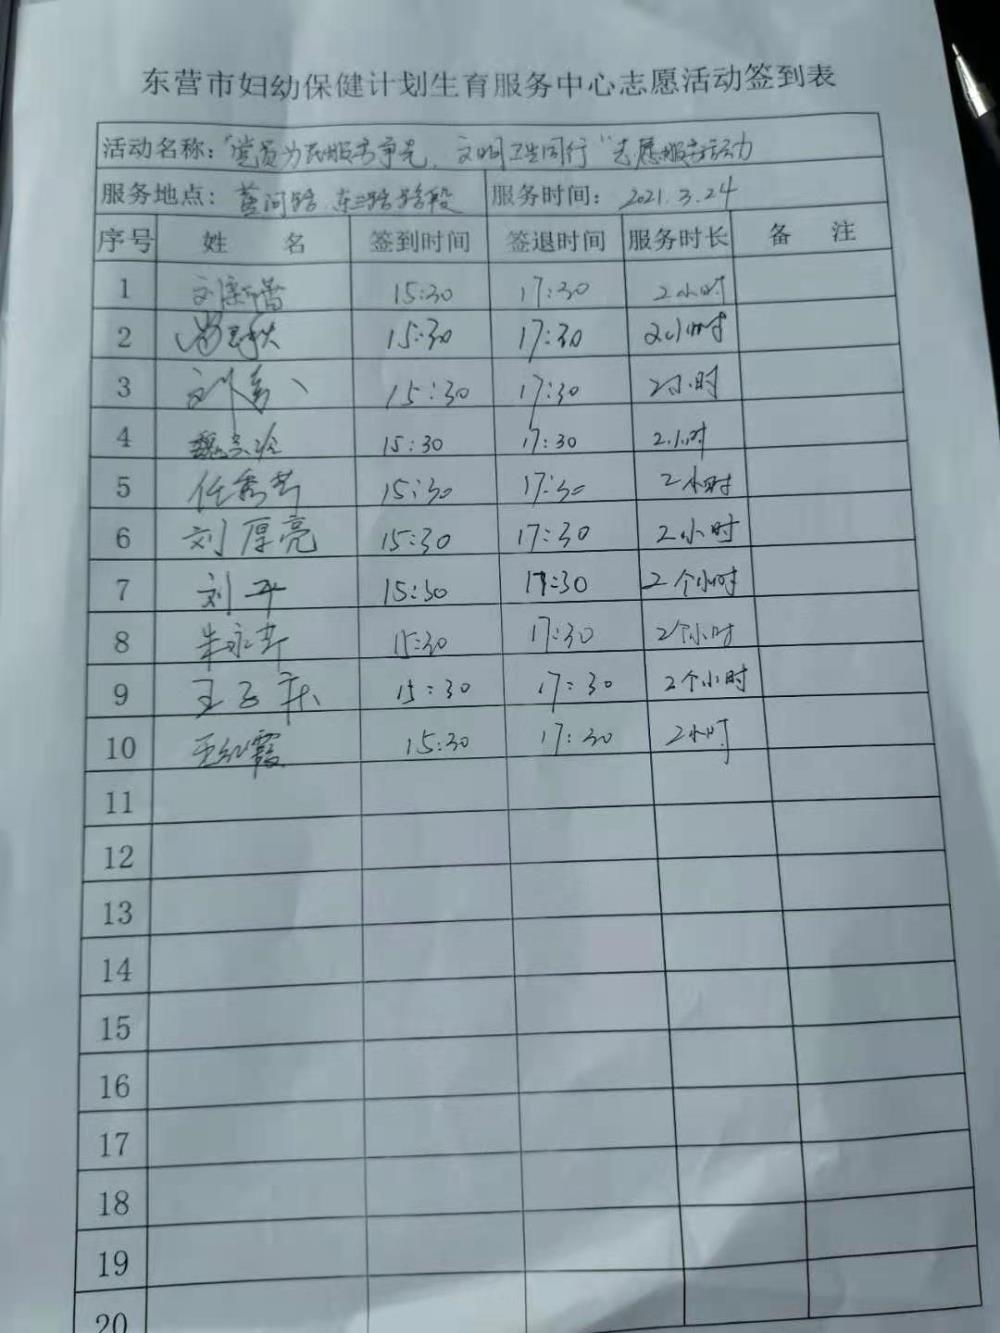 东营市妇幼保健计划生育服务中心志愿活动签到表
活动名称：“党员为民服务争先，文明卫生同行”志愿服务活动
服务地点：黄河路 东二路路段 服务时间：2021.3.24
序号 姓 名 签到时间 签退时间 服务时长 备 注
1 15:30 17:30 2小时
2 15:30 17:30 2小时
3 15:30 17:30 2小时
4 15:30 17:30 2小时
5 任秀芹 15:30 17:30 2小时
6 刘厚亮 15:30 17:30 2小时
7 刘平 15:30 17:30 2个小时
8 15:30 17:30 2个小时
9 15:30 17:30 2个小时
10 王红霞 15:30 17:30 2小时
11
12
13
14
15
16
17
18
19
20